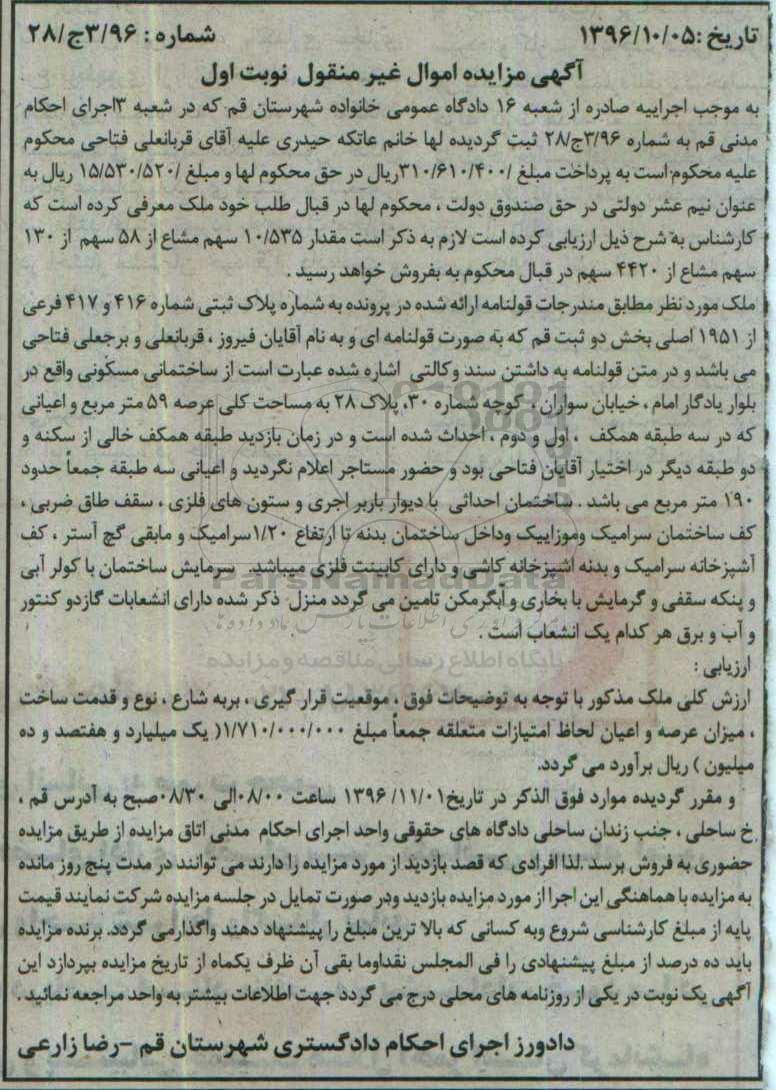 تاریخ :۱۳۹۶/۱۰/۰۵
شماره : ۳/۹۶ج/۲۸
آگهی مزایده اموال غیر منقول نوبت اول
به موجب اجراییه صادره از شعبه ۱۶ دادگاه عمومی خانواده شهرستان قم که در شعبه ۳اجرای احکام
مدنی قم به شماره ۳/۹۶ج/۲۸ ثبت گردیده لها خانم عاتکه حیدری علیه آقای قربانعلی فتاحی محکوم
علیه محکوم است به پرداخت مبلغ /۳۱۰/۶۱۰/۴۰۰ریال در حق محکوم لها و مبلغ /۱۵/۵۳۰/۵۲۰ ریال به
عنوان نیم عشر دولتی در حق صندوق دولت ، محکوم لها در قبال طلب خود ملک معرفی کرده است که
کارشناس به شرح ذیل ارزیابی کرده است لازم به ذکر است مقدار ۱۰/۵۳۵ سهم مشاع از ۵۸ سهم از ۱۳۰
سهم مشاع از ۴۴۲۰ سهم در قبال محکوم به بفروش خواهد رسید .
ملک مورد نظر مطابق مندرجات قولنامه ارائه شده در پرونده به شماره پلاک ثبتی شماره ۴۱۶ و ۴۱۷ فرعی
از ۱۹۵۱ اصلی بخش دو ثبت قم که به صورت قولنامه ای و به نام آقایان فیروز ، قربانعلی و برجعلی فتاحی
می باشد و در متن قولنامه به داشتن سند وکالتی اشاره شده عبارت است از ساختمانی مسکونی واقع در
بلوار یادگار امام ، خیابان سواران ، کوچه شماره ۳۰، پلاک ۲۸ به مساحت کلی عرصه ۵۹ متر مربع و اعیانی
که در سه طبقه همکف ، اول و دوم ، احداث شده است و در زمان بازدید طبقه همکف خالی از سکنه و
دو طبقه دیگر در اختیار آقایان فتاحی بود و حضور مستاجر اعلام نگردید و اعیانی سه طبقه جمعاً حدود
۱۹۰ متر مربع می باشد . ساختمان احداثی با دیوار باربر اجری و ستون های فلزی ، سقف طاق ضربی ،
کف ساختمان سرامیک وموزاییک وداخل ساختمان بدنه تا ارتفاع ۱/۲۰سرامیک و مابقی گچ آستر ، کف
آشپزخانه سرامیک و بدنه اشپزخانه کاشی و دارای کابینت فلزی میباشد. سرمایش ساختمان با کولر آبی
و پنکه سقفی و گرمایش با بخاری و آبگرمکن تامین می گردد منزل ذکر شده دارای انشعابات گازدو کنتور
و آب و برق هر کدام یک انشعاب است .
ارزیابی :
ارزش کلی ملک مذکور با توجه به توضیحات فوق ، موقعیت قرار گیری ، بربه شارع ، نوع و قدمت ساخت
، میزان عرصه و اعیان لحاظ امتیازات متعلقه جمعاً مبلغ ۱/۷۱۰/۰۰۰/۰۰۰( یک میلیارد و هفتصد و ده
میلیون ) ریال برآورد می گردد.
و مقرر گردیده موارد فوق الذکر در تاریخ۱۳۹۶/۱۱/۰۱ ساعت ۰۸/۰۰الی ۰۸/۳۰صبح به آدرس قم ،
خ ساحلی ، جنب زندان ساحلی دادگاه های حقوقی واحد اجرای احکام مدنی اتاق مزایده از طریق مزایده
حضوری به فروش برسد .لذا افرادی که قصد بازدید از مورد مزایده را دارند می توانند در مدت پنج روز مانده
به مزایده با هماهنگی این اجرا از مورد مزایده بازدید ودر صورت تمایل در جلسه مزایده شرکت نمایند قیمت
پایه از مبلغ کارشناسی شروع وبه کسانی که بالا ترین مبلغ را پیشنهاد دهند واگذارمی گردد. برنده مزایده
باید ده درصد از مبلغ پیشنهادی را فی المجلس نقداوما بقی آن ظرف یکماه از تاریخ مزایده بپردازد این
آگهی یک نوبت در یکی از روزنامه های محلی درج می گردد جهت اطلاعات بیشتر به واحد مراجعه نمائید .
دادورز اجرای احکام دادگستری شهرستان قم –رضا زارعی
ParsNamadData
پایگاه اطلاع رسانی مناقصه و مزایده